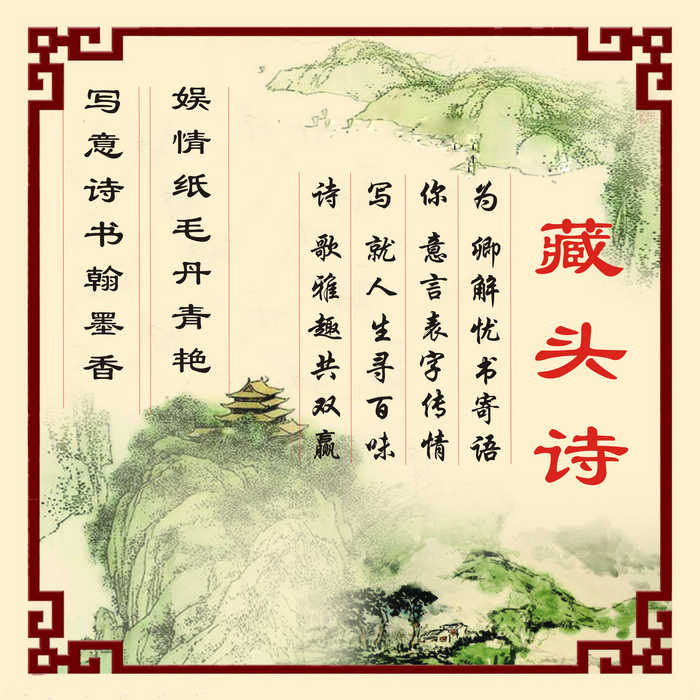 藏头诗
为卿解忧书寄语
你意言表字传情
写就人生寻百味
诗歌雅趣共双赢
娱情纸毛丹青艳
写意诗书翰墨香